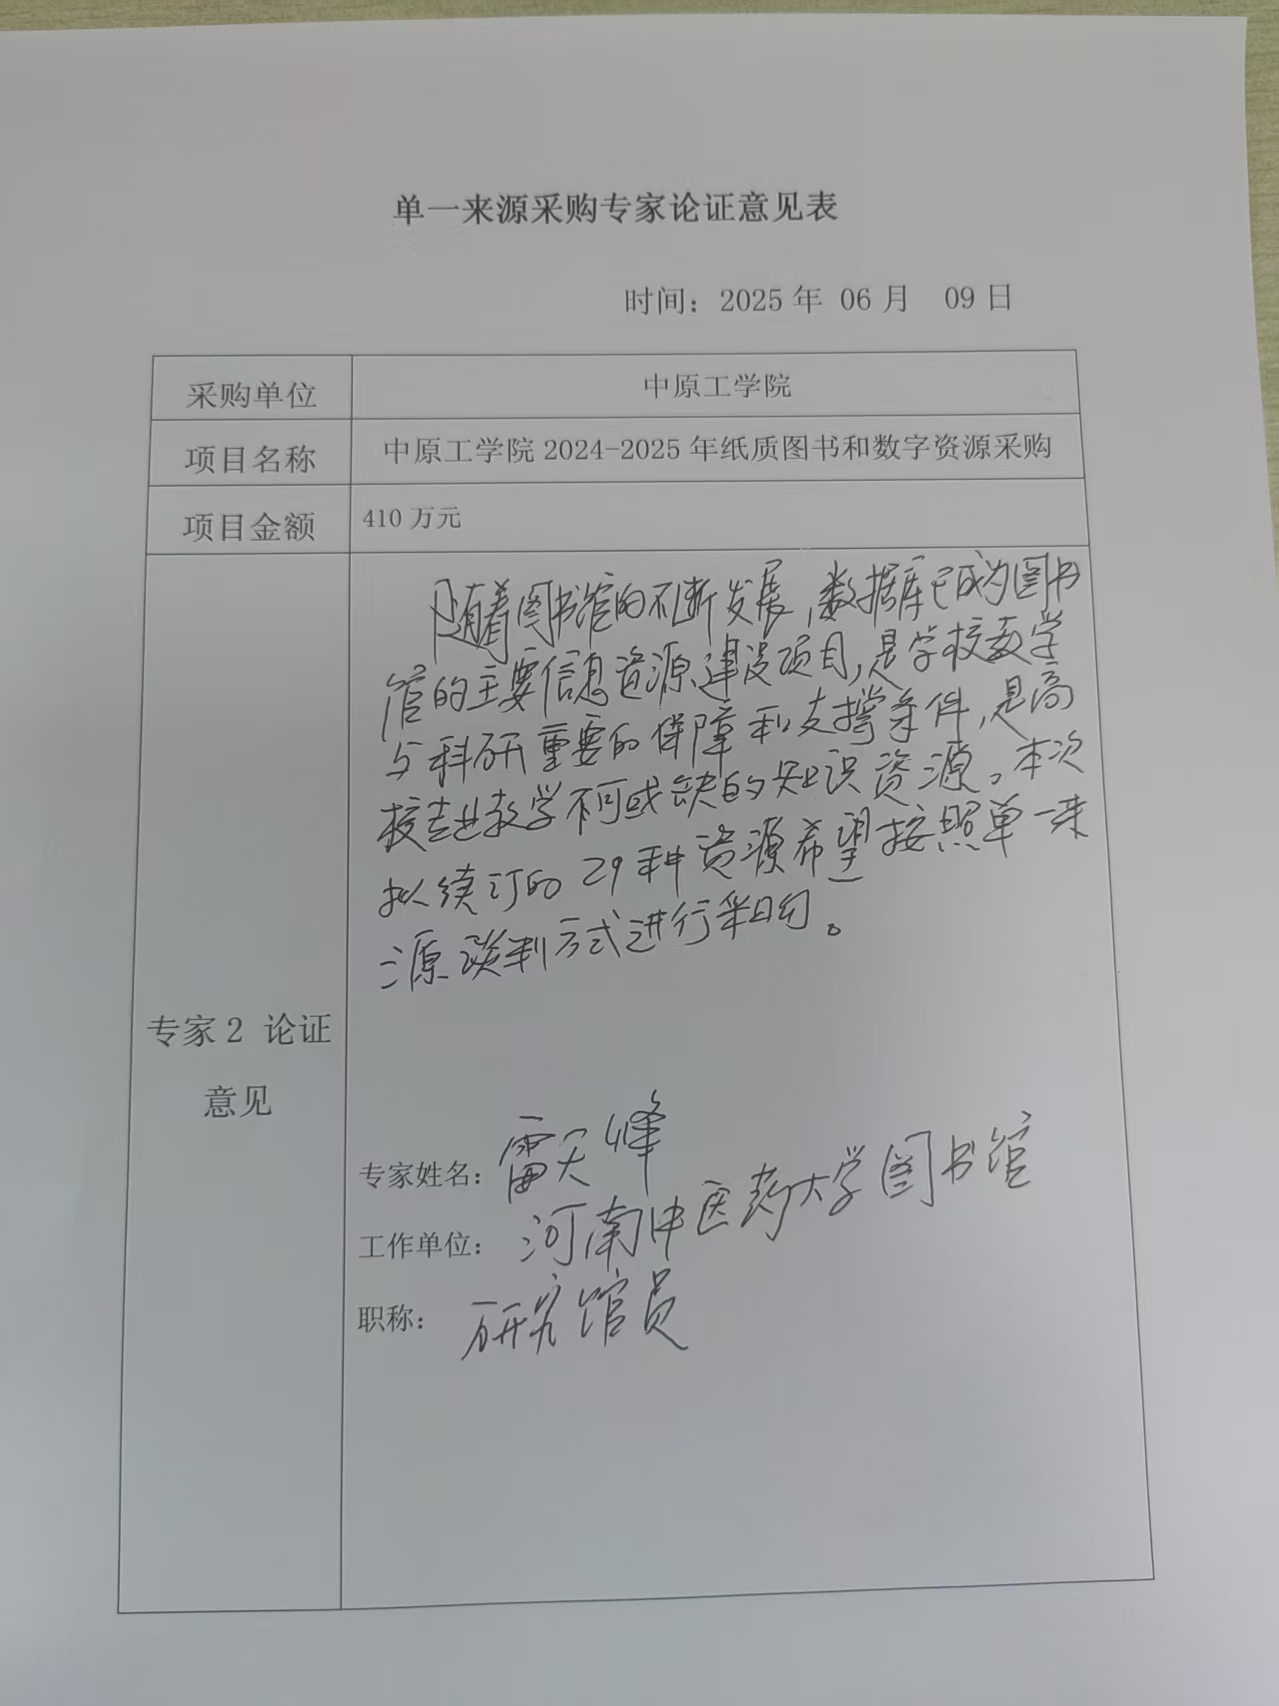 单一来源采购专家论证意见表
时间：2025年 06月 09日
采购单位 中原工学院
项目名称 中原工学院2024-2025年纸质图书和数字资源采购
项目金额 410万元
随着图书馆的不断发展，数据库已成为图书
馆的主要信息资源建设项目，是学校教学
与科研重要的保障和支撑条件，是高
校专业教学不可或缺的知识资源。本次
拟续订的29种资源希望按照单一来
源谈判方式进行采购。
专家2 论证
意见
专家姓名：雷天峰
工作单位：河南中医药大学图书馆
职称：研究馆员